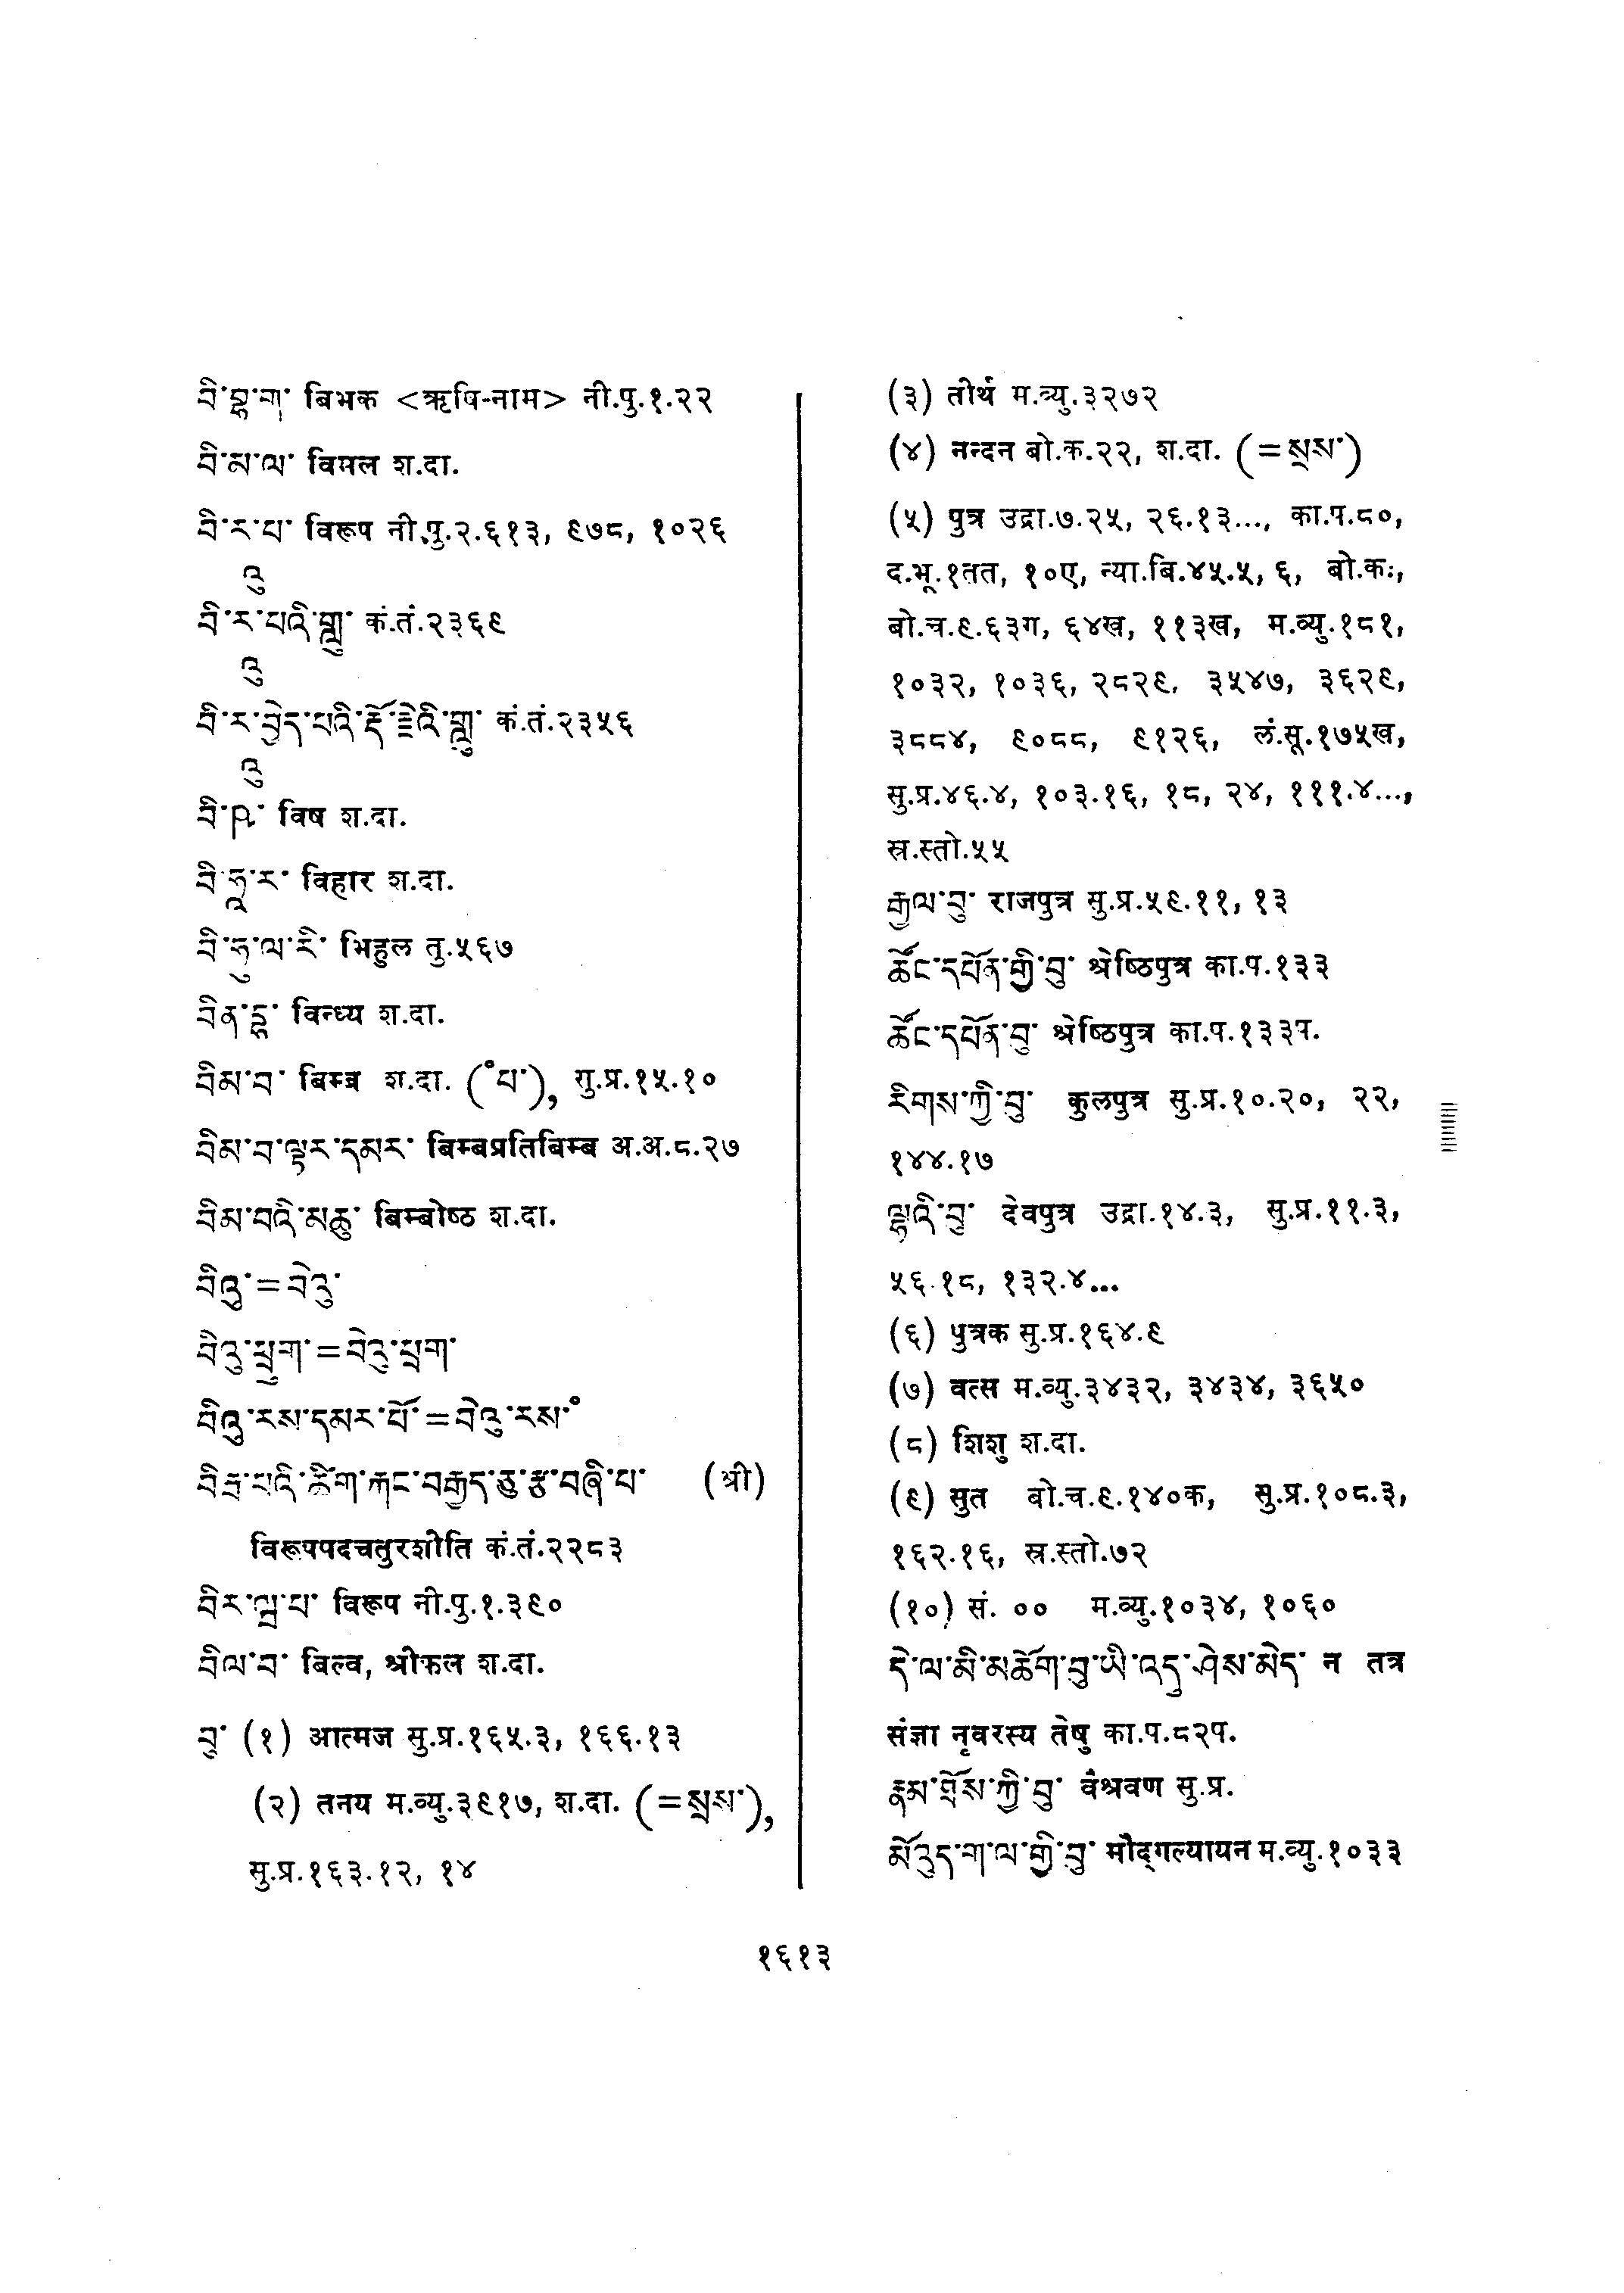 བི་བྷ་ག་ बिभक <ऋषि-नाम> नी.पु.१.२२
བི་མ་ལ་ विमल श.दा.
བི་རཱུ་པ་ विरूप नी.पु.२.६१३, ९७८, १०२६
བི་རཱུ་པའི་གླུ་ कं.तं.२३६९
བི་རཱུ་བྱེད་པའི་རྡོ་རྗེའི་གླུ་ कं.तं.२३५६
བི་ཥ་ विष श.दा.
བི་ཧཱ་ར་ विहार श.दा.
བི་ཧུ་ལ་རི་ भिहुल तु.५६७
བིན་དྷ་ विन्ध्य श.दा.
བིམ་བ་ बिम्ब श.दा. (˚པ་), सु.प्र.१५.१०
བིམ་བ་ལྟར་དམར་ बिम्बप्रतिबिम्ब अ.अ.८.२७
བིམ་བའི་མཆུ་ बिम्बोष्ठ श.दा.
བིཨུ་=བེའུ་
བིའུ་ཕྲུག་=བེའུ་ཕྲུག་
བིཨུ་རས་དམར་པོ་=བེའུ་རས་˚
བིརྦ་པའི་ཚིག་རྐང་བརྒྱད་ཅུ་རྩ་བཞི་པ་ (श्री)
विरूपपदचतुरशीति कं.तं.२२८३
བིར་ལྦ་པ་ विरूप नी.पु.१.३९०
བིལ་བ་ बिल्व, श्रीफल श.दा.
བུ་ (१) आत्मज सु.प्र.१६५.३, १६६.१३
(२) तनय म.व्यु.३९१७, श.दा. (=སྲས་),
सु.प्र.१६३.१२, १४
(३) तीर्थ म.व्यु.३२७२
(४) नन्दन बो.क.२२, श.दा. (=སྲས་)
(५) पुत्र उद्रा.७.२५, २६.१३..., का.प.८०,
द.भू.१तत, १०ए, न्या.बि.४५.५, ६, बो.कः,
बो.च.९.६३ग, ६४ख, ११३ख, म.व्यु.१८१,
१०३२, १०३६, २८२९, ३५४७, ३६२९,
३८८४, ९०८८, ९१२६, लं.सू.१७५ख,
सु.प्र.४६.४, १०३.१६, १८, २४, १११.४...,
स्र.स्तो.५५
རྒྱལ་བུ་ राजपुत्र सु.प्र.५९.११, १३
ཚོང་དཔོན་གྱི་བུ་ श्रेष्ठिपुत्र का.प.१३३
ཚོང་དཔོན་བུ་ श्रेष्ठिपुत्र का.प.१३३प.
རིགས་ཀྱི་བུ་ कुलपुत्र सु.प्र.१०.२०, २२,
१४४.१७
ལྷའི་བུ་ देवपुत्र उद्रा.१४.३, सु.प्र.११.३,
५६.१८, १३२.४...
(६) पुत्रक सु.प्र.१६४.९
(७) वत्स म.व्यु.३४३२, ३४३४, ३६५०
(८) शिशु श.दा.
(९) सुत बो.च.९.१४०क, सु.प्र.१०८.३,
१६२.१६, स्र.स्तो.७२
(१०) सं. ०० म.व्यु.१०३४, १०६०
དེ་ལ་མི་མཆོག་བུ་ཡི་འདུ་ཤེས་མེད་ न तत्र
संज्ञा नृवरस्य तेषु का.प.८२प.
རྣམ་ཐོས་ཀྱི་བུ་ वैश्रवण सु.प्र.
མོའུད་ག་ལ་གྱི་བུ་ मौद्गल्यायन म.व्यु.१०३३
१६१३